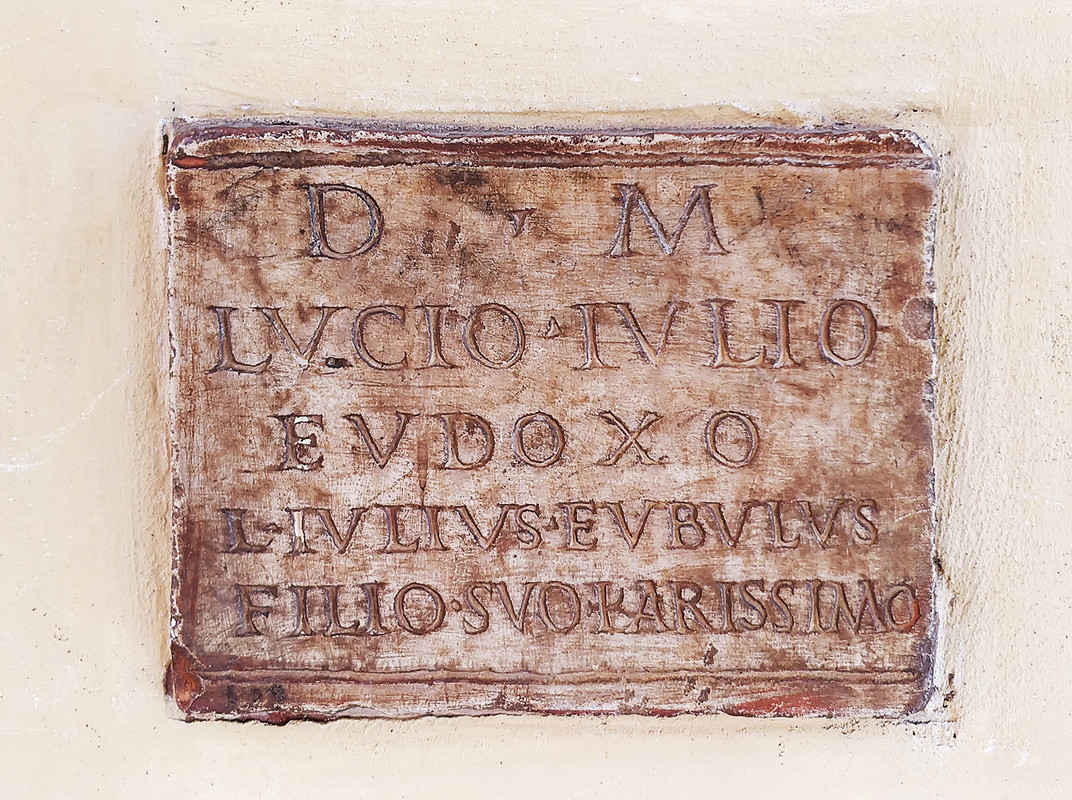 D · M
LVCIO · IVLIO
EVDOXO
L · IVLIVS · EVBVLVS
FILIO · SVO · KARISSIMO